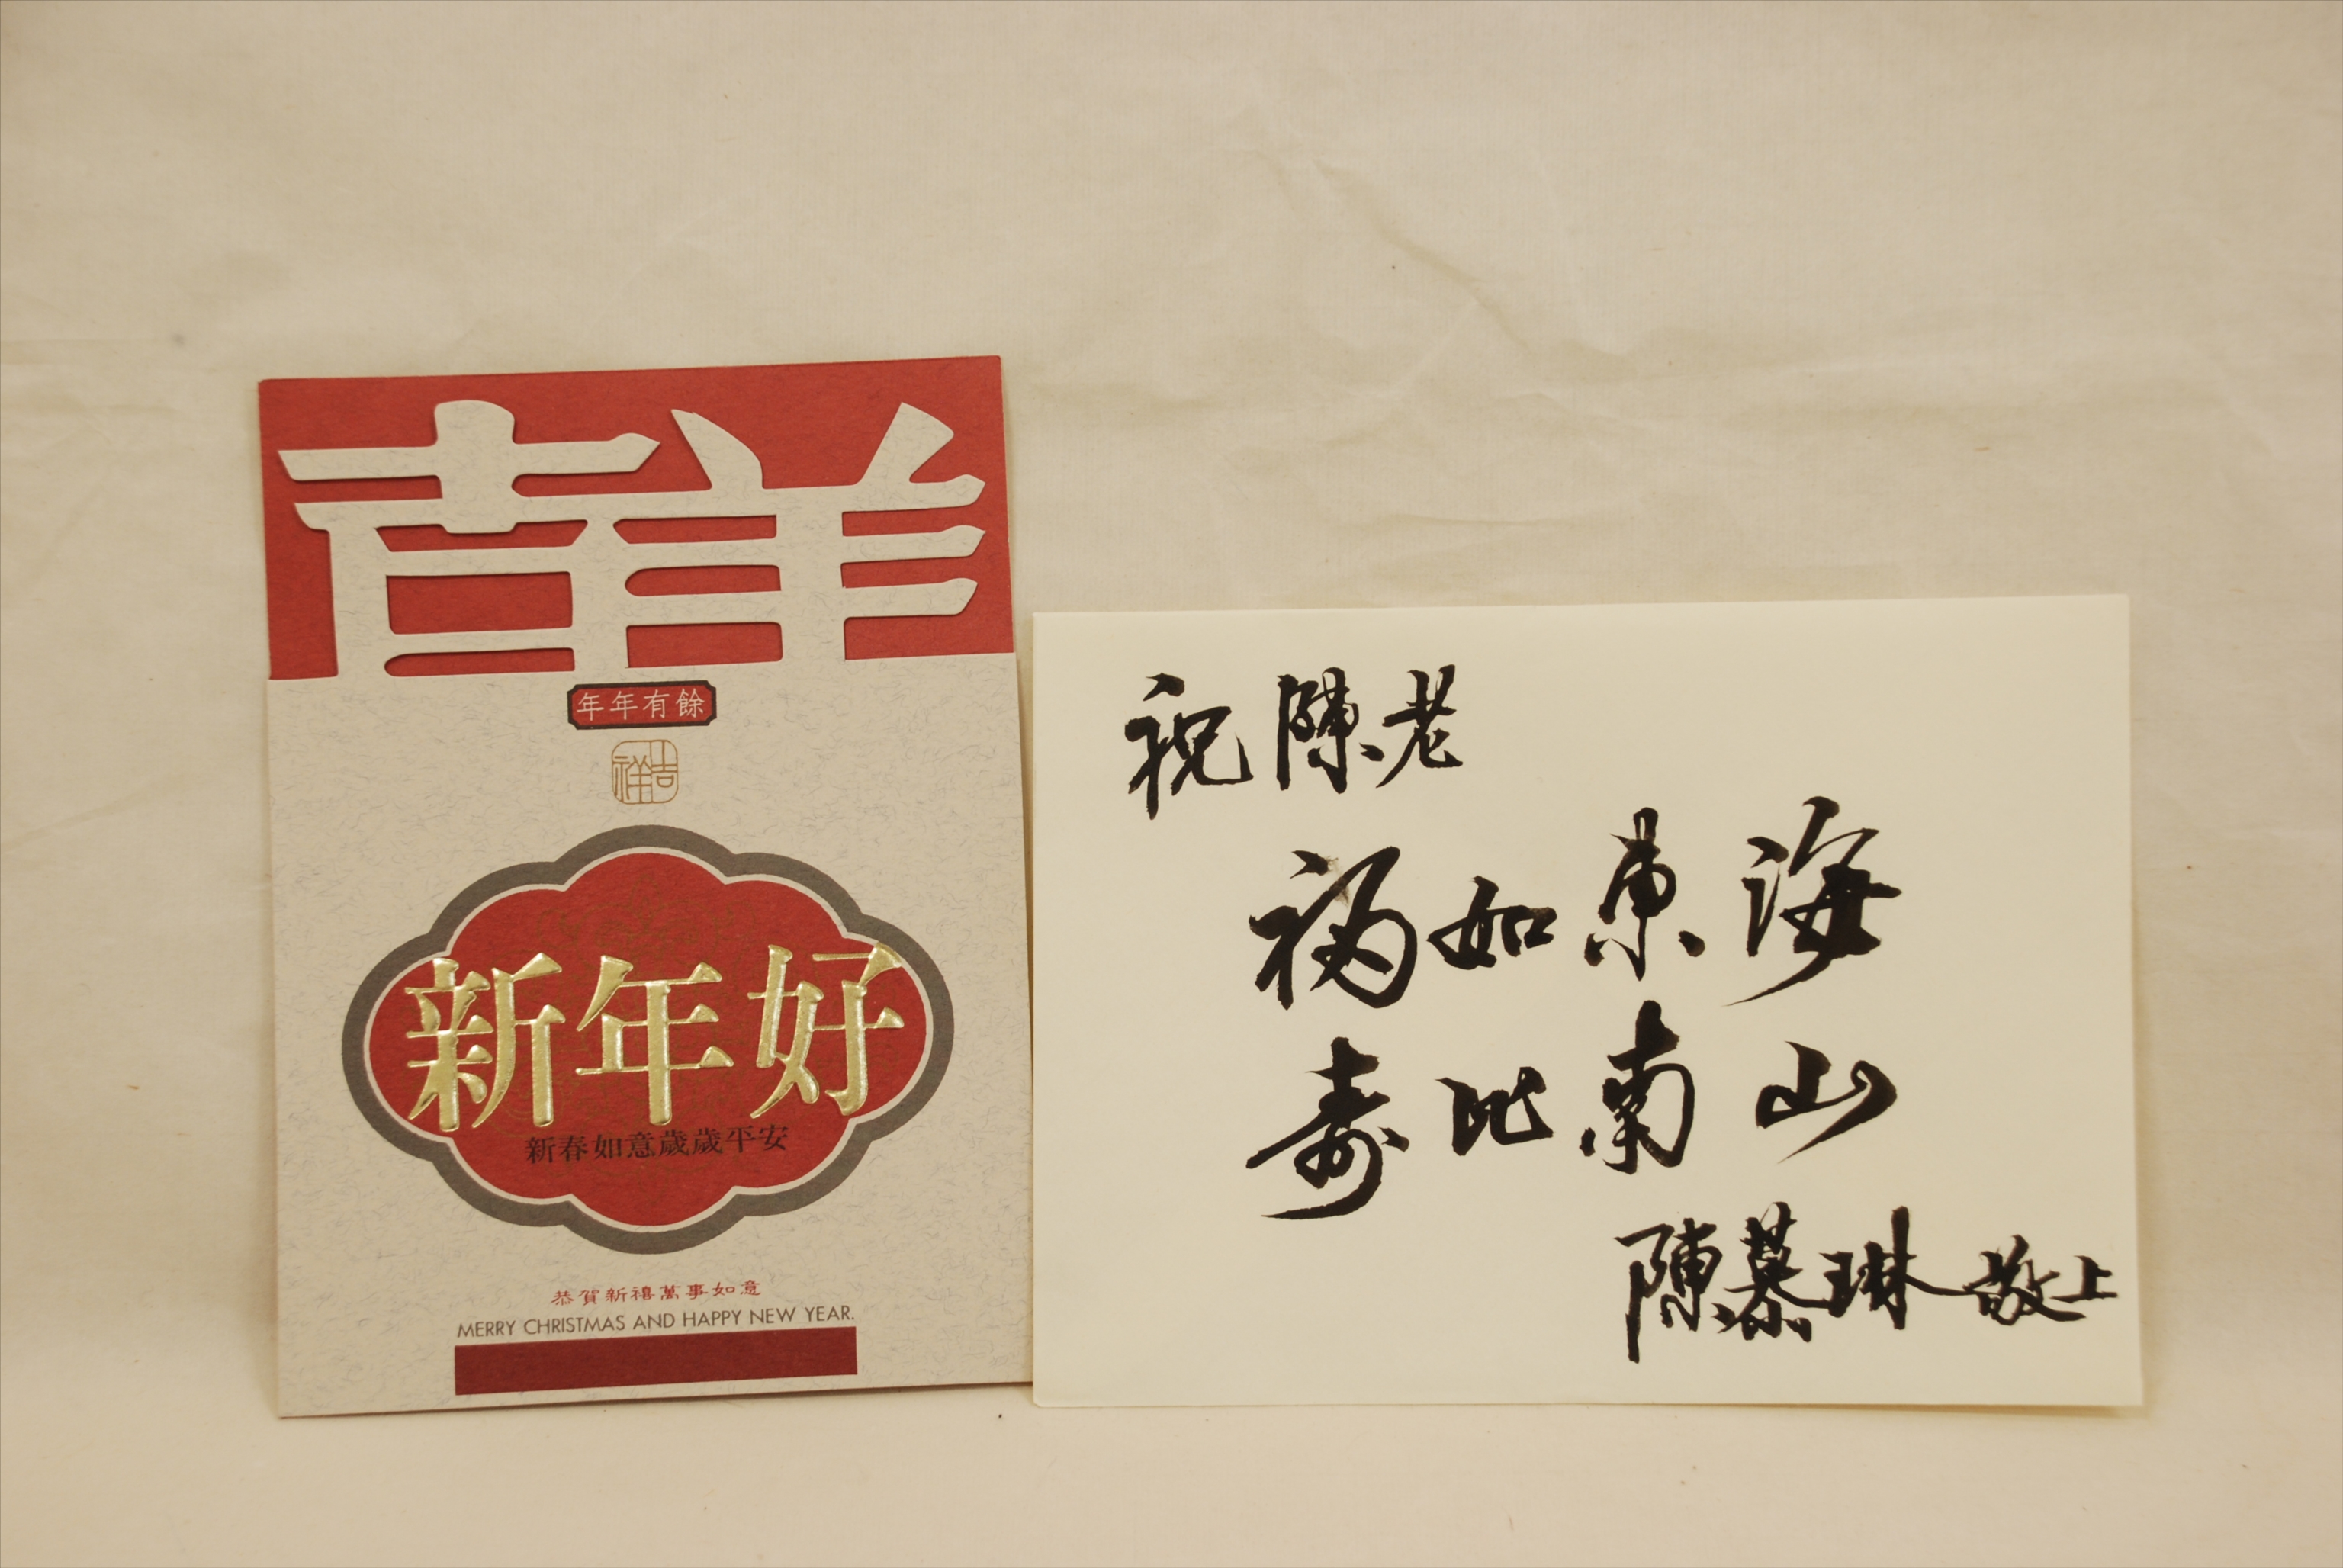 吉羊
年年有餘
吉祥
新年好
新春如意歲歲平安
恭賀新禧萬事如意
MERRY CHRISTMAS AND HAPPY NEW YEAR.
祝陳老
福如東海
壽比南山
陳慕琳敬上